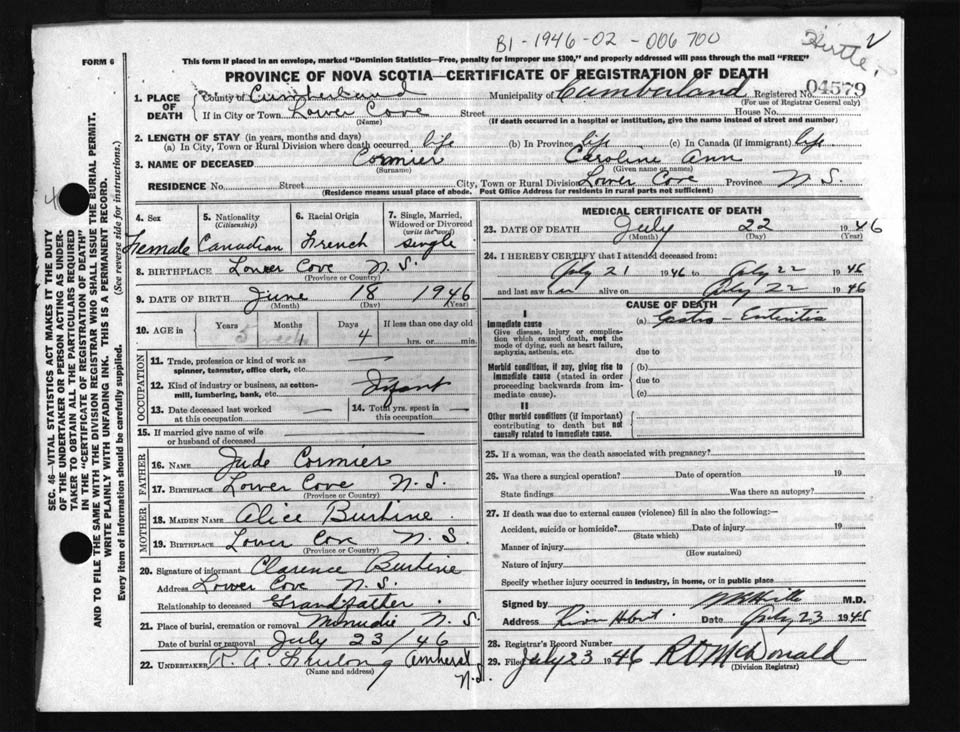 B1-1946-02-006700
Hirtle
FORM 6
This form if placed in an envelope, marked "Dominion Statistics—Free, penalty for improper use $300," and properly addressed will pass through the mail "FREE"
PROVINCE OF NOVA SCOTIA—CERTIFICATE OF REGISTRATION OF DEATH
04579
1. PLACE OF DEATH
County of Cumberland Municipality of Cumberland Registered No.
(For use of Registrar General only)
If in City or Town Lower Cove Street House No.
(Name) (If death occurred in a hospital or institution, give the name instead of street and number)
2. LENGTH OF STAY (in years, months and days)
(a) In City, Town or Rural Division where death occurred life (b) In Province life (c) In Canada (if immigrant) life
3. NAME OF DECEASED Cormier Caroline Ann
(Surname) (Given name or names)
RESIDENCE No. Street City, Town or Rural Division Lower Cove Province N.S.
(Residence means usual place of abode. Post Office Address for residents in rural parts not sufficient)
4. Sex
Female
5. Nationality
(Citizenship)
Canadian
6. Racial Origin
French
7. Single, Married, Widowed or Divorced
(write the word)
single
8. BIRTHPLACE Lower Cove N.S.
(Province or Country)
9. DATE OF BIRTH June 18 1946
(Month) (Day) (Year)
10. AGE in
Years Months Days If less than one day old
4
hrs. or min.
OCCUPATION
11. Trade, profession or kind of work as spinner, teamster, office clerk, etc. —
12. Kind of industry or business, as cotton-mill, lumbering, bank, etc. Infant
13. Date deceased last worked at this occupation —
14. Total yrs. spent in this occupation —
15. If married give name of wife or husband of deceased
FATHER
16. NAME Jude Cormier
17. BIRTHPLACE Lower Cove N.S.
(Province or Country)
MOTHER
18. MAIDEN NAME Alice Burbine
19. BIRTHPLACE Lower Cove N.S.
(Province or Country)
20. Signature of informant Clarence Burbine
Address Lower Cove N.S.
Relationship to deceased Grandfather
21. Place of burial, cremation or removal Minudie N.S.
Date of burial or removal July 23/46
22. UNDERTAKER R. A. Furlong Amherst N.S.
(Name and address)
MEDICAL CERTIFICATE OF DEATH
23. DATE OF DEATH July 22 1946
(Month) (Day) (Year)
24. I HEREBY CERTIFY that I attended deceased from:
July 21 1946 to July 22 1946
and last saw h er alive on July 22 1946
CAUSE OF DEATH
I
Immediate cause
Give disease, injury or complication which caused death, not the mode of dying, such as heart failure, asphyxia, asthenia, etc.
(a) Gastro-Enteritis
due to
Morbid conditions, if any, giving rise to immediate cause (stated in order proceeding backwards from immediate cause).
(b)
due to
(c)
II
Other morbid conditions (if important) contributing to death but not causally related to immediate cause.
25. If a woman, was the death associated with pregnancy?
26. Was there a surgical operation? Date of operation 19
State findings Was there an autopsy?
27. If death was due to external causes (violence) fill in also the following:—
Accident, suicide or homicide? Date of injury 19
(State which)
Manner of injury
(How sustained)
Nature of injury
Specify whether injury occurred in industry, in home, or in public place
Signed by M.D.
Address River Hebert Date July 23 1946
28. Registrar's Record Number
29. Filed July 23 1946 McDonald
(Division Registrar)
SEC. 46—VITAL STATISTICS ACT MAKES IT THE DUTY
OF THE UNDERTAKER OR PERSON ACTING AS UNDER-
TAKER TO OBTAIN ALL THE PARTICULARS REQUIRED
IN THE "CERTIFICATE OF REGISTRATION OF DEATH"
AND TO FILE THE SAME WITH THE DIVISION REGISTRAR WHO SHALL ISSUE THE BURIAL PERMIT.
WRITE PLAINLY WITH UNFADING INK. THIS IS A PERMANENT RECORD.
Every item of information should be carefully supplied. (See reverse side for instructions.)
4